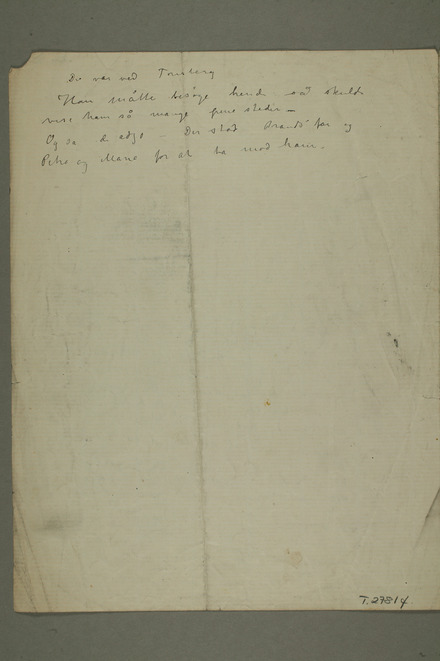 De var ved Tønsberg
Han måtte besøge hende så skulde
vise ham så mange pene steder –
Og da de – Der stod Brandt far og
Petra og Maria for at ta mod ham.
T. 2781 4